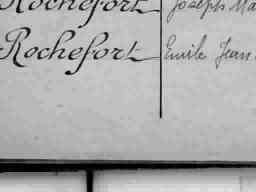 Rochefort Joseph Ma
Rochefort Emile Jean